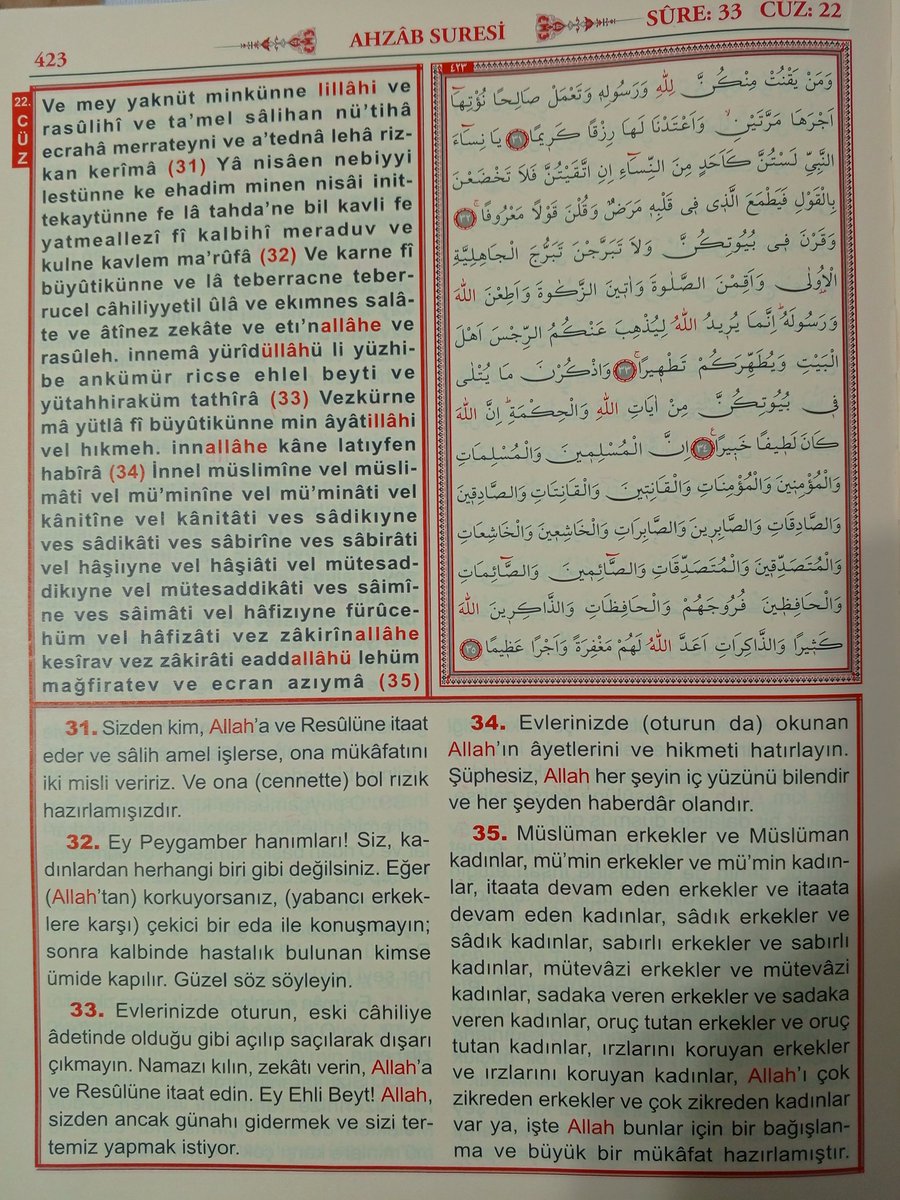 423
AHZÂB SURESİ
SÛRE: 33 CUZ: 22
22.
CÜZ
Ve mey yaknüt minkünne lillâhi ve
rasûlihî ve ta’mel sâlihan nü’tihâ
ecrahâ merrateyni ve a’tednâ lehâ riz-
kan kerîmâ (31) Yâ nisâen nebiyyi
lestünne ke ehadim minen nisâi init-
tekaytünne fe lâ tahda’ne bil kavli fe
yatmeallezî fî kalbihî meraduv ve
kulne kavlem ma’rûfâ (32) Ve karne fî
büyûtikünne ve lâ teberracne teber-
rucel câhiliyyetil ûlâ ve ekımnes salâ-
te ve âtînez zekâte ve etı’nallâhe ve
rasûleh. innemâ yürîdüllâhü li yüzhi-
be ankümür ricse ehlel beyti ve
yütahhiraküm tathîrâ (33) Vezkürne
mâ yütlâ fî büyûtikünne min âyâtillâhi
vel hıkmeh. innallâhe kâne latıyfen
habîrâ (34) İnnel müslimîne vel müsli-
mâti vel mü’minîne vel mü’minâti vel
kânitîne vel kânitâti ves sâdikıyne
ves sâdikâti ves sâbirîne ves sâbirâti
vel hâşiıyne vel hâşiâti vel mütesad-
dikıyne vel mütesaddikâti ves sâimî-
ne ves sâimâti vel hâfizıyne fürûce-
hüm vel hâfizâti vez zâkirînallâhe
kesîrav vez zâkirâti eaddallâhü lehüm
mağfiratev ve ecran azıymâ (35)
٤٢٣
وَمَنْ يَقْنُتْ مِنْكُنَّ لِلّٰهِ وَرَسُولِهٖ وَتَعْمَلْ صَالِحًا نُؤْتِهَٓا
اَجْرَهَا مَرَّتَيْنِۙ وَاَعْتَدْنَا لَهَا رِزْقًا كَرٖيمًا ﴿٣١﴾ يَا نِسَٓاءَ
النَّبِيِّ لَسْتُنَّ كَاَحَدٍ مِنَ النِّسَٓاءِ اِنِ اتَّقَيْتُنَّ فَلَا تَخْضَعْنَ
بِالْقَوْلِ فَيَطْمَعَ الَّذٖى فٖى قَلْبِهٖ مَرَضٌ وَقُلْنَ قَوْلًا مَعْرُوفًاۚ ﴿٣٢﴾
وَقَرْنَ فٖى بُيُوتِكُنَّ وَلَا تَبَرَّجْنَ تَبَرُّجَ الْجَاهِلِيَّةِ
الْاُولٰى وَاَقِمْنَ الصَّلٰوةَ وَاٰتٖينَ الزَّكٰوةَ وَاَطِعْنَ اللّٰهَ
وَرَسُولَهُؕ اِنَّمَا يُرٖيدُ اللّٰهُ لِيُذْهِبَ عَنْكُمُ الرِّجْسَ اَهْلَ
الْبَيْتِ وَيُطَهِّرَكُمْ تَطْهٖيرًاۚ ﴿٣٣﴾ وَاذْكُرْنَ مَا يُتْلٰى
فٖى بُيُوتِكُنَّ مِنْ اٰيَاتِ اللّٰهِ وَالْحِكْمَةِؕ اِنَّ اللّٰهَ
كَانَ لَطٖيفًا خَبٖيرًاۚ ﴿٣٤﴾ اِنَّ الْمُسْلِمٖينَ وَالْمُسْلِمَاتِ
وَالْمُؤْمِنٖينَ وَالْمُؤْمِنَاتِ وَالْقَانِتٖينَ وَالْقَانِتَاتِ وَالصَّادِقٖينَ
وَالصَّادِقَاتِ وَالصَّابِرٖينَ وَالصَّابِرَاتِ وَالْخَاشِعٖينَ وَالْخَاشِعَاتِ
وَالْمُتَصَدِّقٖينَ وَالْمُتَصَدِّقَاتِ وَالصَّٓائِمٖينَ وَالصَّٓائِمَاتِ
وَالْحَافِظٖينَ فُرُوجَهُمْ وَالْحَافِظَاتِ وَالذَّاكِرٖينَ اللّٰهَ
كَثٖيرًا وَالذَّاكِرَاتِ اَعَدَّ اللّٰهُ لَهُمْ مَغْفِرَةً وَاَجْرًا عَظٖيمًا ﴿٣٥﴾
31. Sizden kim, Allah’a ve Resûlüne itaat
eder ve sâlih amel işlerse, ona mükâfatını
iki misli veririz. Ve ona (cennette) bol rızık
hazırlamışızdır.
32. Ey Peygamber hanımları! Siz, ka-
dınlardan herhangi biri gibi değilsiniz. Eğer
(Allah’tan) korkuyorsanız, (yabancı erkek-
lere karşı) çekici bir eda ile konuşmayın;
sonra kalbinde hastalık bulunan kimse
ümide kapılır. Güzel söz söyleyin.
33. Evlerinizde oturun, eski câhiliye
âdetinde olduğu gibi açılıp saçılarak dışarı
çıkmayın. Namazı kılın, zekâtı verin, Allah’a
ve Resûlüne itaat edin. Ey Ehli Beyt! Allah,
sizden ancak günahı gidermek ve sizi ter-
temiz yapmak istiyor.
34. Evlerinizde (oturun da) okunan
Allah’ın âyetlerini ve hikmeti hatırlayın.
Şüphesiz, Allah her şeyin iç yüzünü bilendir
ve her şeyden haberdâr olandır.
35. Müslüman erkekler ve Müslüman
kadınlar, mü’min erkekler ve mü’min kadın-
lar, itaata devam eden erkekler ve itaata
devam eden kadınlar, sâdık erkekler ve
sâdık kadınlar, sabırlı erkekler ve sabırlı
kadınlar, mütevâzi erkekler ve mütevâzi
kadınlar, sadaka veren erkekler ve sadaka
veren kadınlar, oruç tutan erkekler ve oruç
tutan kadınlar, ırzlarını koruyan erkekler
ve ırzlarını koruyan kadınlar, Allah’ı çok
zikreden erkekler ve çok zikreden kadınlar
var ya, işte Allah bunlar için bir bağışlan-
ma ve büyük bir mükâfat hazırlamıştır.